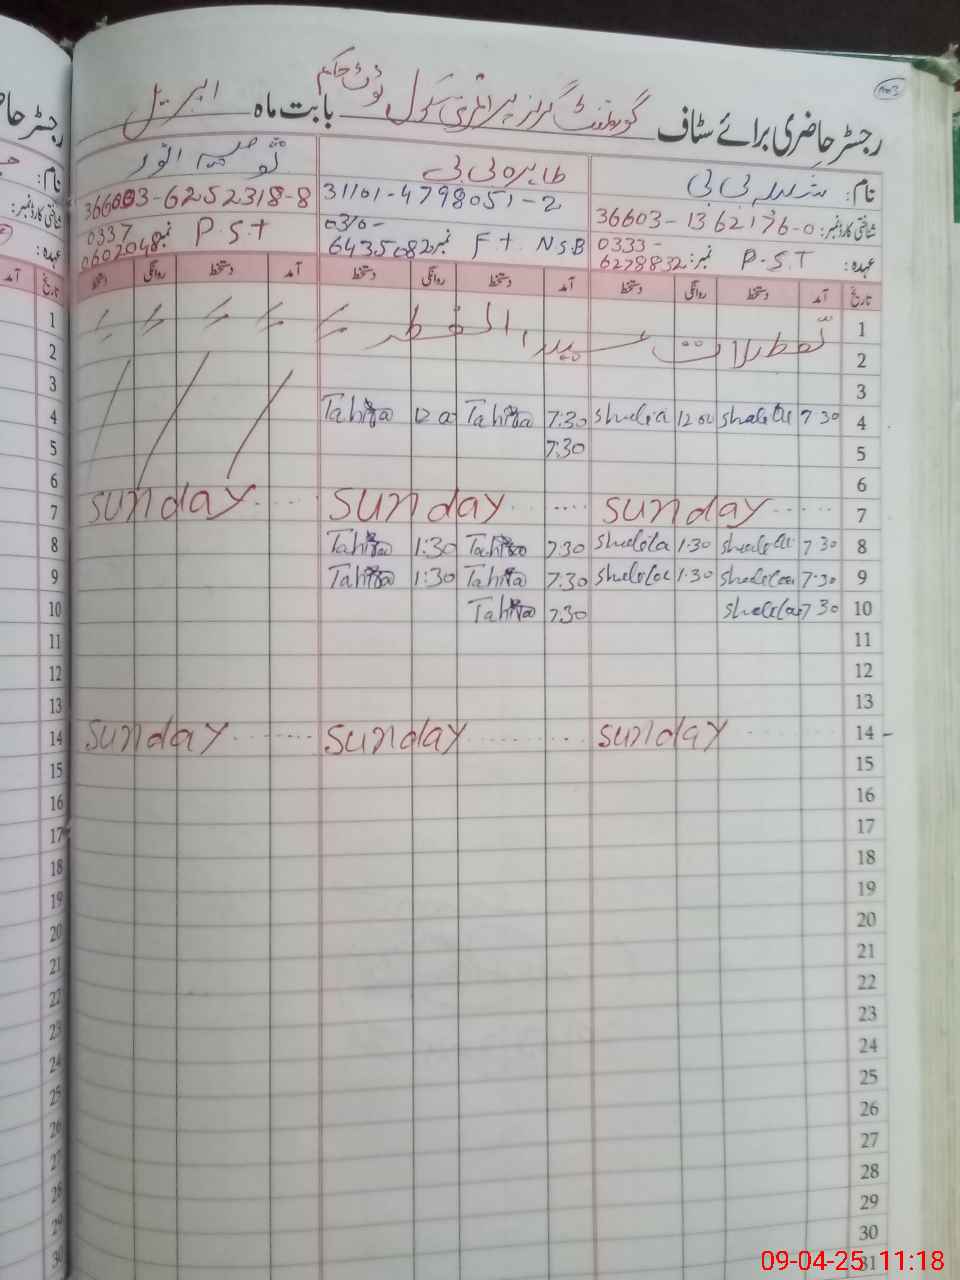 رجسٹر حاضری برائے سٹاف گورنمنٹ گرلز پرائمری سکول بابت ماہ اپریل
نام: شکیلہ بی بی طاہرہ بی بی ثوبیہ انور
شناختی کارڈ نمبر: 36603-1362176-0 31101-4798051-2 36603-6252318-8
عہدہ: P.S.T نمبر: 0333-6278832 F.T. NSB نمبر 0310-6435082 P.S.T نمبر 0337 0602048
تاریخ آمد دستخط روانگی دستخط آمد دستخط روانگی دستخط آمد دستخط روانگی دستخط
1 تعطیلات عید الفطر 〃 〃 〃 〃 〃
2
3
Tahira 12 00 Tahira 7:30 Shakila 12 00 Shakila 7 30 4
7:30 5
6
Sunday Sunday Sunday 7
Tahira 1:30 Tahira 7:30 Shakila 1:30 Shakila 7 30 8
Tahira 1:30 Tahira 7:30 Shakila 1:30 Shakila 7:30 9
Tahira 7:30 Shakila 7 30 10
11
12
13
Sunday Sunday Sunday 14
15
16
17
18
19
20
21
22
23
24
25
26
27
28
29
30
31
09-04-25 11:18